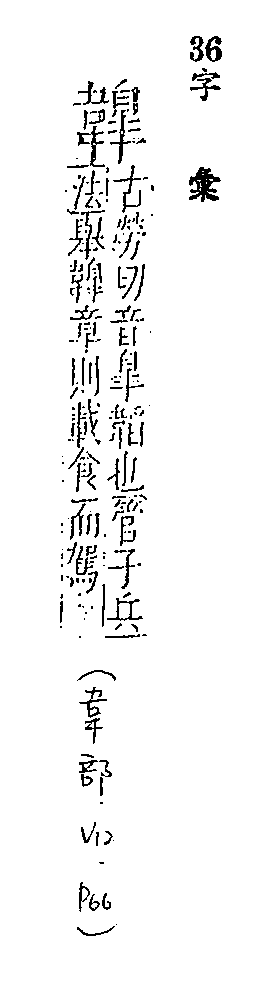 36字彙
韟
古勞切音皐韜也管子兵
法舉韟章則載食而駕
(韋部.V12.P66)